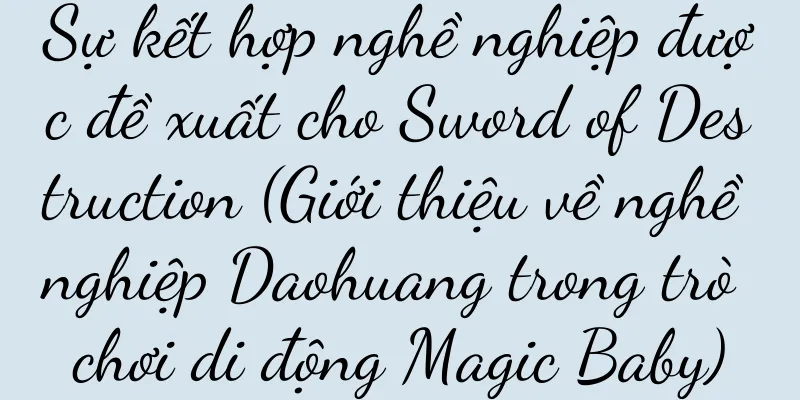 Sự kết hợp nghề nghiệp đượ
c đề xuất cho Sword of Des
truction (Giới thiệu về nghề
nghiệp Daohuang trong trò
chơi di động Magic Baby)